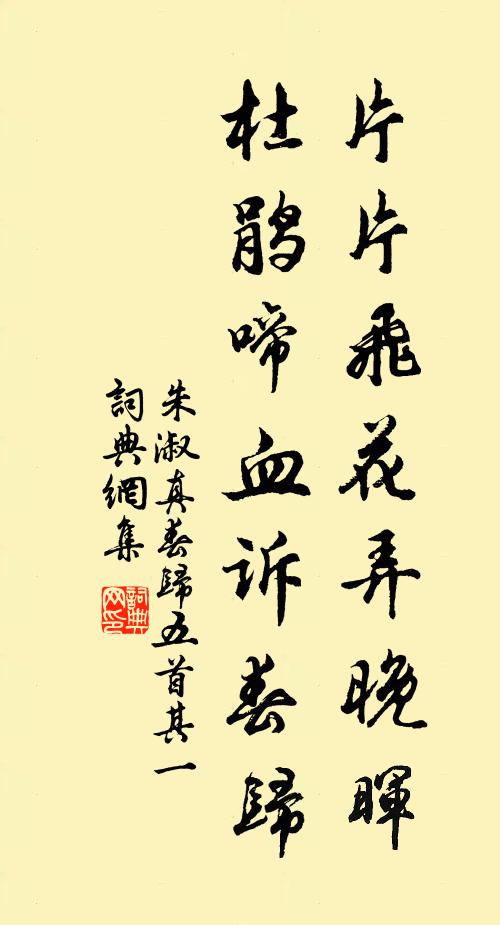 片片飛花弄晚暉
杜鹃啼血诉春歸
朱淑真春歸五首其一
詞典網集
詞典网印